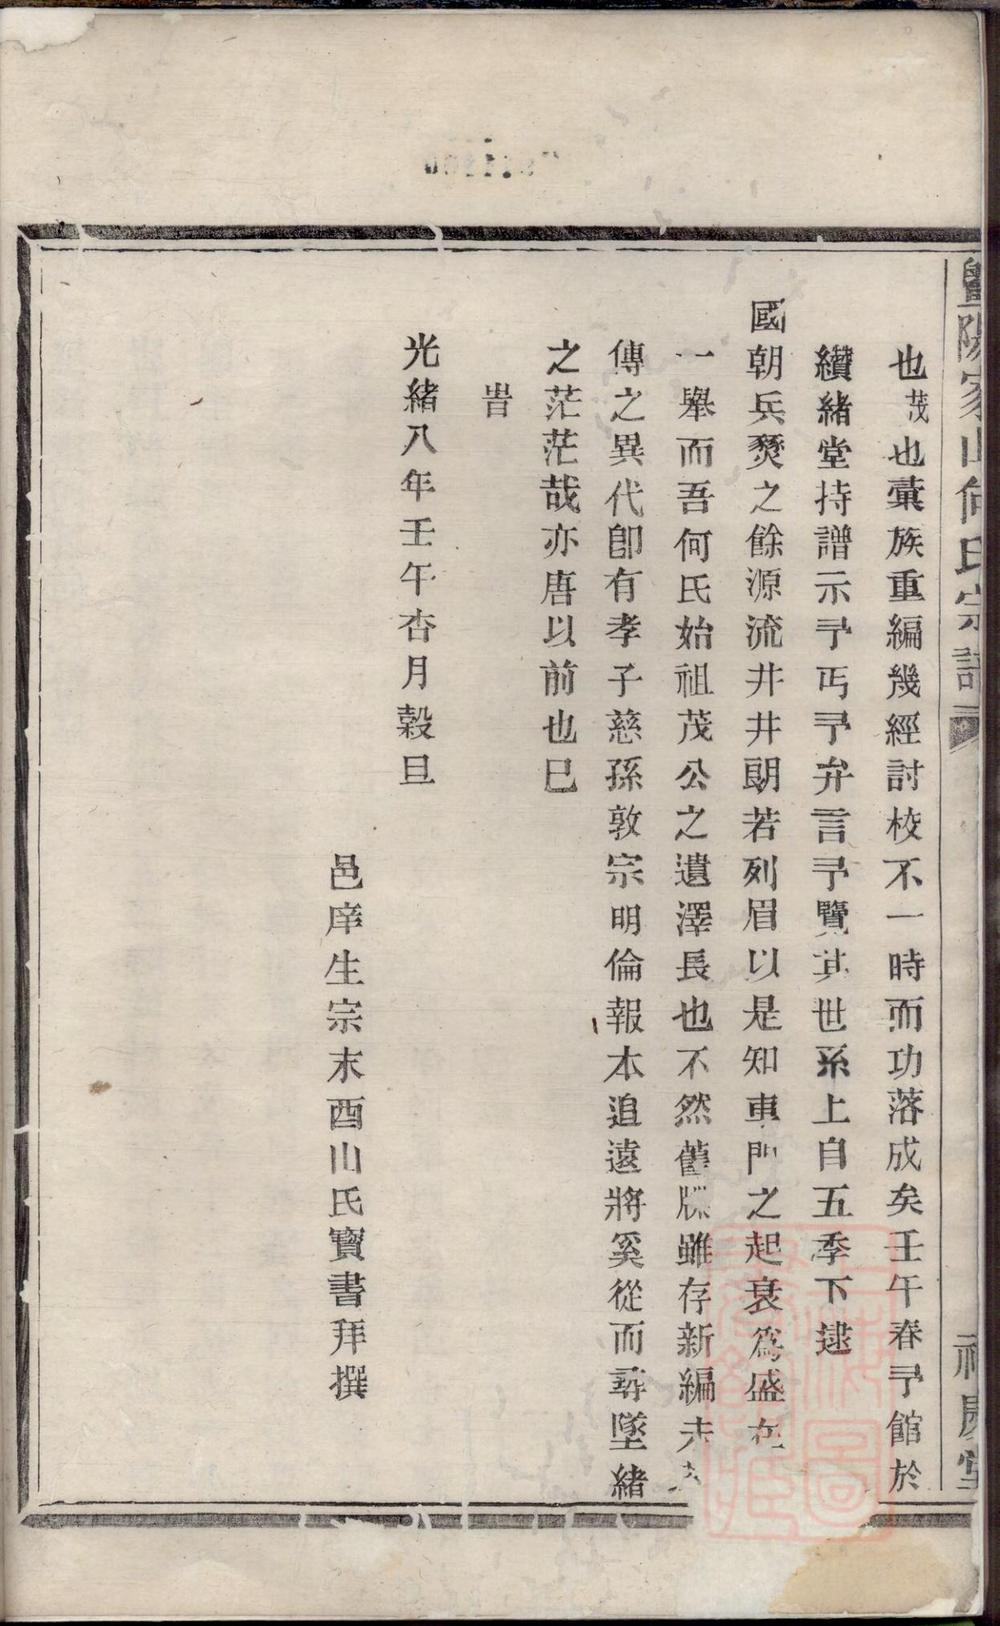 暨陽家山何氏宗譜
祠月堂
也茂也彙族重編幾經討校不一時而功落成矣壬午春予館於
纘緒堂持譜示予丐予弁言予覽其世系上自五季下逮
國朝兵燹之餘源流井井朗若列眉以是知車門之起衰為盛在
一舉而吾何氏始祖茂公之遺澤長也不然舊牒雖存新編未
傳之異代卽有孝子慈孫敦宗明倫報本追遠將奚從而尋墜緒
之茫茫哉亦唐以前也巳
旹
光緒八年壬午杏月穀旦
邑庠生宗末酉山氏寶書拜撰